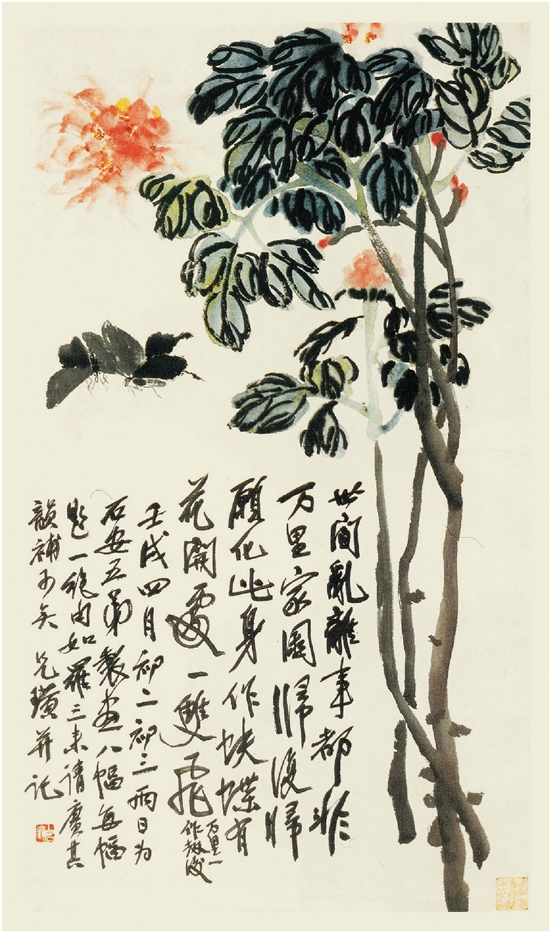 世間亂離事都非
万里家園歸復歸
願化此身作蛺蝶有
花開處一雙飛
万里一
作
壬戌四月初二初三兩日為
石安五弟製畫八幅每幅
題一絕句如羅三來請賡其
韻補矣 兄璜并記